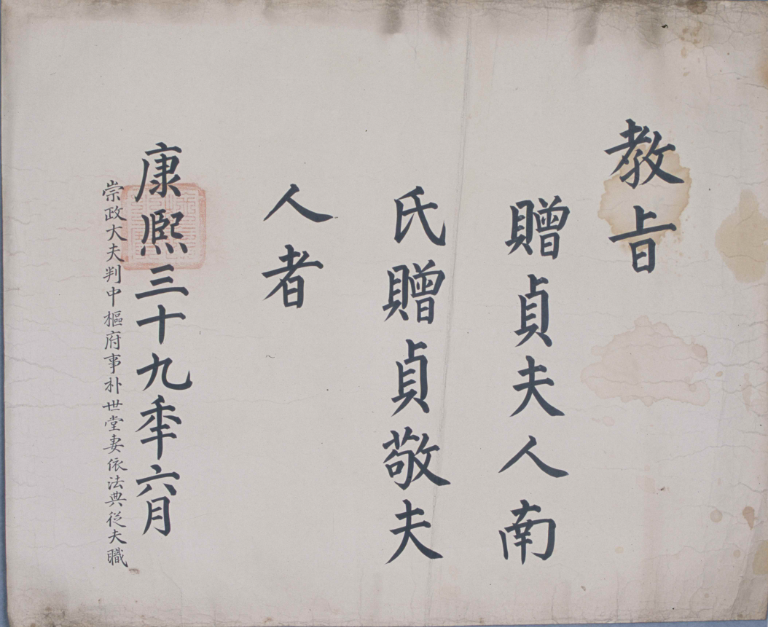 教旨
贈貞夫人南
氏贈貞敬夫
人者
康熙三十九年六月
崇政大夫判中樞府事朴世堂妻依法典從夫職